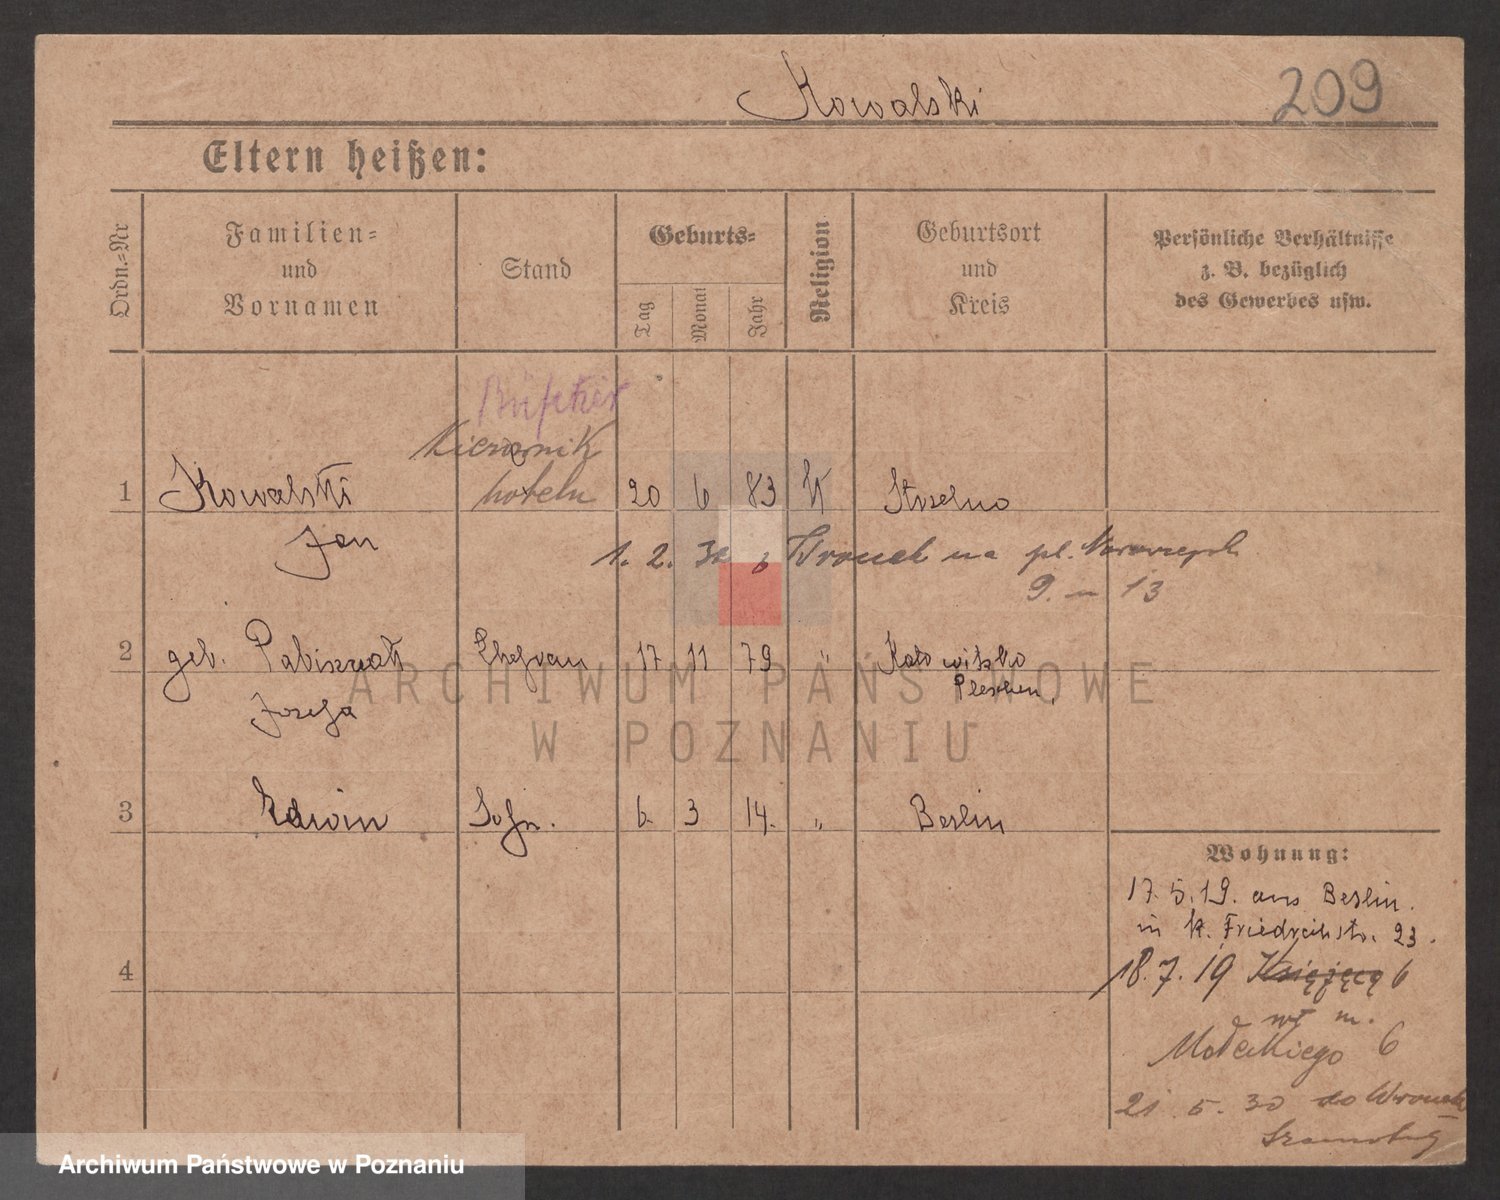 Kowalski
209
Eltern heißen:
Ordn.-Nr
Familien-
und
Vornamen
Stand
Geburts-
Tag
Monat
Jahr
Religion
Geburtsort
und
Kreis
Persönliche Verhältnisse
z. B. bezüglich
des Gewerbes usw.
Büfetier
Kierownik
1 Kowalski hotelu 20 6 83 K Strzelno
Jan
1. 2. 32 z Wronek na pl.
9. – 13
2 geb. Pabiszczak Ehefrau 17 11 79 " Kotowitzko
Pleschen
Józefa
ARCHIWUM PAŃSTWOWE
W POZNANIU
3 Edwin Sohn. 6 3 14. " Berlin
Wohnung:
17. 5. 19. aus Berlin.
in K. Friedrichstr. 23.
4
18. 7. 19 Książęca 6
wł m.
Małeckiego 6
21 5. 30 do Wronek
Szamotuły
Archiwum Państwowe w Poznaniu